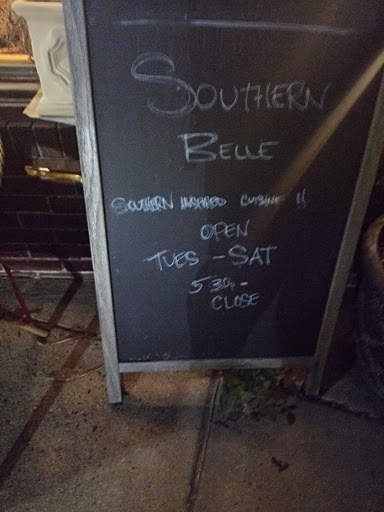 SOUTHERN
BELLE
SOUTHERN INSPIRED CUISINE !!
OPEN
TUES - SAT
5 30p -
CLOSE